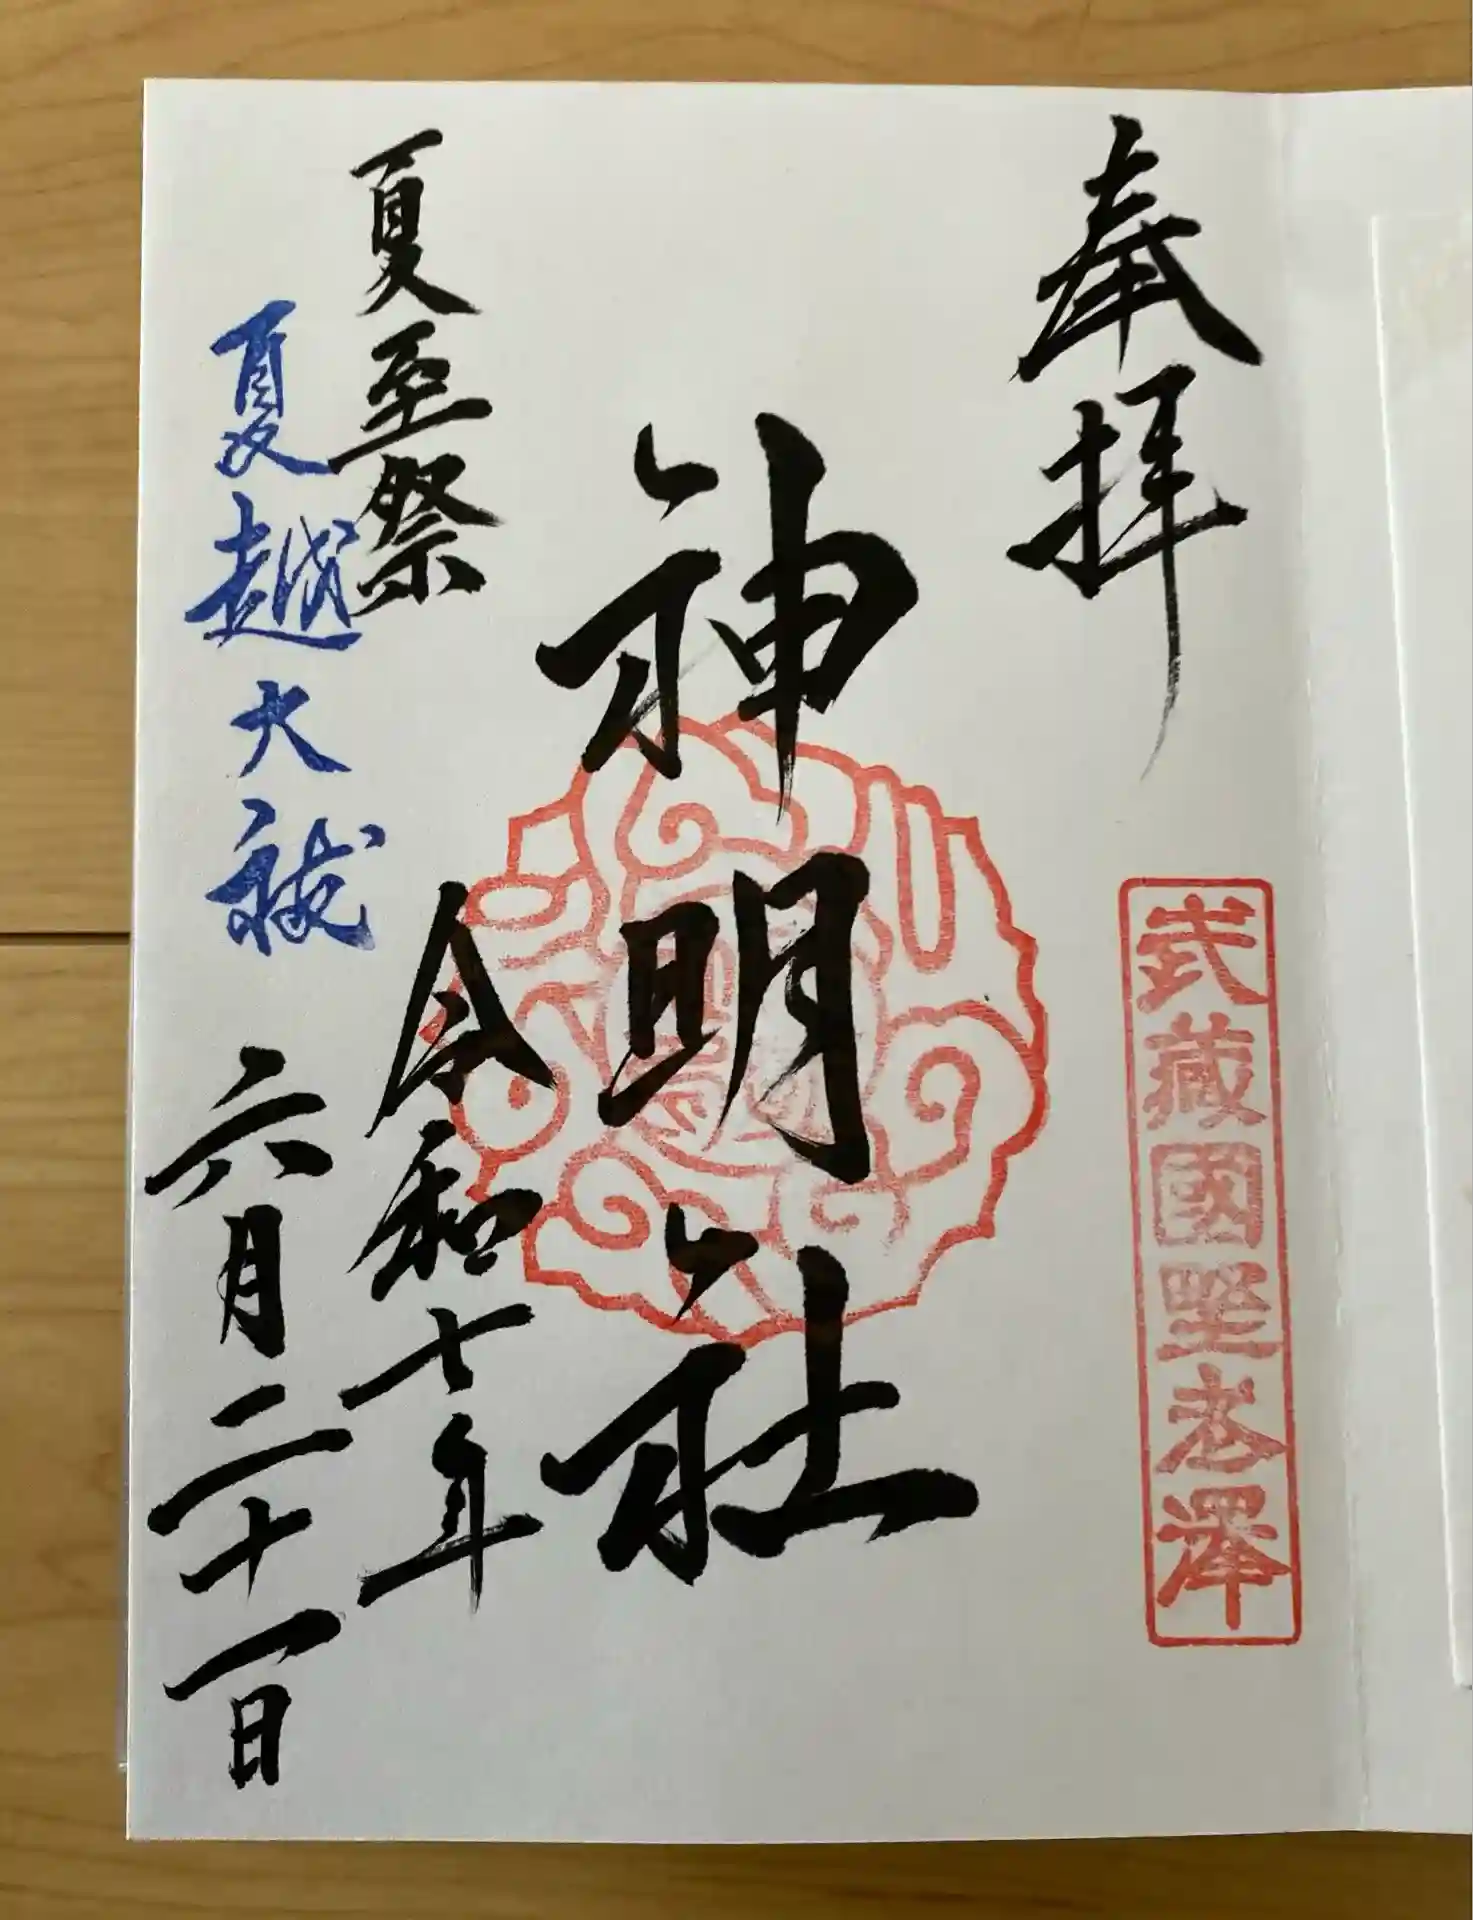 奉拝
武藏國野老澤
神明社
夏至祭
令和七年
夏越大祓
六月二十一日